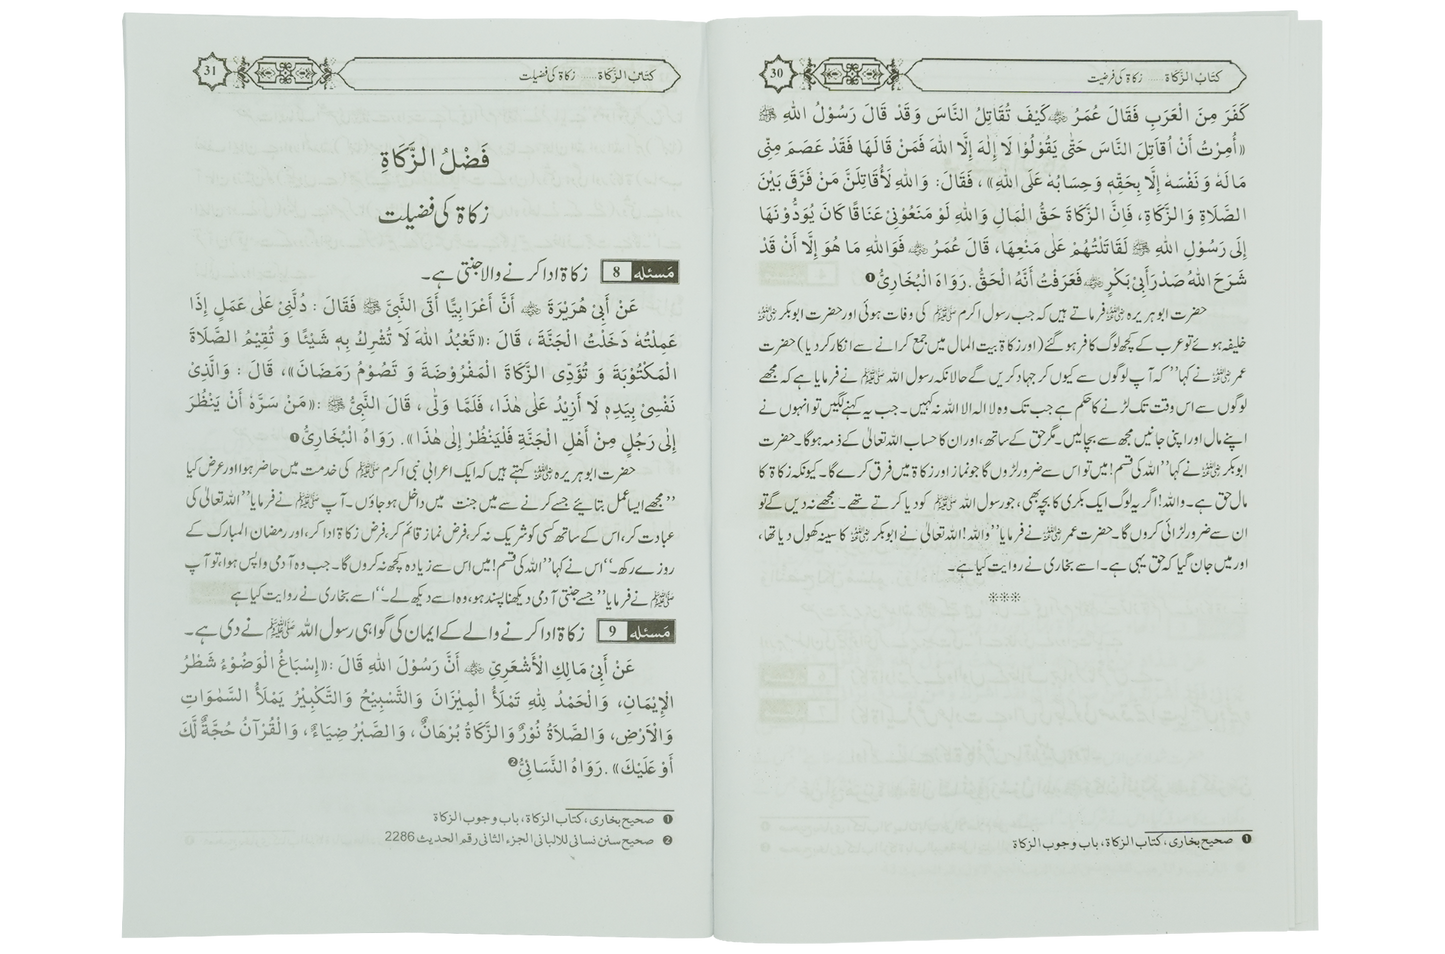 كتاب الزكاة ...... زکاۃ کی فرضیت
30
كَفَرَ مِنَ الْعَرَبِ فَقَالَ عُمَرُ ؓ كَيْفَ تُقَاتِلُ النَّاسَ وَقَدْ قَالَ رَسُوْلُ اللهِ ﷺ
«أُمِرْتُ أَنْ أُقَاتِلَ النَّاسَ حَتّٰى يَقُوْلُوْا لَا إِلٰهَ إِلَّا اللهُ فَمَنْ قَالَهَا فَقَدْ عَصَمَ مِنِّى
مَالَهُ وَنَفْسَهُ إِلَّا بِحَقِّهِ وَحِسَابُهُ عَلَى اللهِ» ، فَقَالَ: وَاللهِ لَأُقَاتِلَنَّ مَنْ فَرَّقَ بَيْنَ
الصَّلَاةِ وَالزَّكَاةِ، فَإِنَّ الزَّكَاةَ حَقُّ الْمَالِ وَاللهِ لَوْ مَنَعُوْنِىْ عَنَاقًا كَانَ يُؤَدُّوْنَهَا
إِلٰى رَسُوْلِ اللهِ ﷺ لَقَاتَلْتُهُمْ عَلٰى مَنْعِهَا، قَالَ عُمَرُ ؓ فَوَاللهِ مَا هُوَ إِلَّا أَنْ قَدْ
شَرَحَ اللهُ صَدْرَ أَبِىْ بَكْرٍ ؓ فَعَرَفْتُ أَنَّهُ الْحَقُّ. رَوَاهُ الْبُخَارِىُّ ❶
حضرت ابو ہریرہ ؓ فرماتے ہیں کہ جب رسول اکرم ﷺ کی وفات ہوئی اور حضرت ابو بکر ؓ
خلیفہ ہوئے تو عرب کے کچھ لوگ کافر ہو گئے (اور زکاۃ بیت المال میں جمع کرانے سے انکار کر دیا) حضرت
عمر ؓ نے کہا ’’کہ آپ لوگوں سے کیوں کر جہاد کریں گے حالانکہ رسول اللہ ﷺ نے فرمایا ہے کہ مجھے
لوگوں سے اس وقت تک لڑنے کا حکم ہے جب تک وہ لا الہ الا اللہ نہ کہیں۔ جب یہ کہنے لگیں تو انہوں نے
اپنے مال اور اپنی جانیں مجھ سے بچالیں۔ مگر حق کے ساتھ، اور ان کا حساب اللہ تعالیٰ کے ذمہ ہوگا۔ حضرت
ابو بکر ؓ نے کہا ’’اللہ کی قسم! میں تو اس سے ضرور لڑوں گا جو نماز اور زکاۃ میں فرق کرے گا۔ کیونکہ زکاۃ کا
مال حق ہے۔ واللہ! اگر یہ لوگ ایک بکری کا بچہ بھی، جو رسول اللہ ﷺ کو دیا کرتے تھے۔ مجھے نہ دیں گے تو
ان سے ضرور لڑائی کروں گا۔ حضرت عمر ؓ نے فرمایا ’’واللہ! اللہ تعالیٰ نے ابو بکر ؓ کا سینہ کھول دیا تھا،
اور میں جان گیا کہ حق یہی ہے۔ اسے بخاری نے روایت کیا ہے۔
❊❊❊
❶ صحيح بخارى، كتاب الزكاة، باب وجوب الزكاة
كتاب الزكاة ...... زکاۃ کی فضیلت
31
فَضْلُ الزَّكَاةِ
زکاۃ کی فضیلت
مسئلہ 8 زکاۃ ادا کرنے والا جنتی ہے۔
عَنْ أَبِىْ هُرَيْرَةَ ؓ أَنَّ أَعْرَابِيًّا أَتَى النَّبِىَّ ﷺ فَقَالَ : دُلَّنِىْ عَلٰى عَمَلٍ إِذَا
عَمِلْتُهُ دَخَلْتُ الْجَنَّةَ ، قَالَ :«تَعْبُدُ اللهَ لَا تُشْرِكُ بِهِ شَيْئًا وَ تُقِيْمُ الصَّلَاةَ
الْمَكْتُوْبَةَ وَ تُؤَدِّى الزَّكَاةَ الْمَفْرُوْضَةَ وَ تَصُوْمُ رَمَضَانَ»، قَالَ : وَالَّذِىْ
نَفْسِىْ بِيَدِهِ لَا أَزِيْدُ عَلٰى هٰذَا، فَلَمَّا وَلّٰى ، قَالَ النَّبِىُّ ﷺ :«مَنْ سَرَّهُ أَنْ يَنْظُرَ
إِلٰى رَجُلٍ مِنْ أَهْلِ الْجَنَّةِ فَلْيَنْظُرْ إِلٰى هٰذَا» . رَوَاهُ الْبُخَارِىُّ ❶
حضرت ابو ہریرہ ؓ کہتے ہیں کہ ایک اعرابی نبی اکرم ﷺ کی خدمت میں حاضر ہوا اور عرض کیا
’’مجھے ایسا عمل بتائیے جسے کرنے سے میں جنت میں داخل ہو جاؤں۔ آپ ﷺ نے فرمایا ’’اللہ تعالیٰ کی
عبادت کر، اس کے ساتھ کسی کو شریک نہ کر، فرض نماز قائم کر، فرض زکاۃ ادا کر، اور رمضان المبارک کے
روزے رکھ۔‘‘ اس نے کہا ’’اللہ کی قسم! میں اس سے زیادہ کچھ نہ کروں گا۔ جب وہ آدمی واپس ہوا، تو آپ
ﷺ نے فرمایا ’’جسے جنتی آدمی دیکھنا پسند ہو، وہ اسے دیکھ لے۔‘‘ اسے بخاری نے روایت کیا ہے
مسئلہ 9 زکاۃ ادا کرنے والے کے ایمان کی گواہی رسول اللہ ﷺ نے دی ہے۔
عَنْ أَبِىْ مَالِكِ الْأَشْعَرِىِّ ؓ أَنَّ رَسُوْلَ اللهِ قَالَ :«إِسْبَاغُ الْوَضُوْءُ شَطْرُ
الْإِيْمَانِ، وَالْحَمْدُ لِلّٰهِ تَمْلَأُ الْمِيْزَانَ وَالتَّسْبِيْحُ وَالتَّكْبِيْرُ يَمْلَأُ السَّمٰوَاتِ
وَالْأَرْضِ، وَالصَّلَاةُ نُوْرٌ وَالزَّكَاةُ بُرْهَانٌ ، وَالصَّبْرُ ضِيَاءٌ، وَالْقُرْآنُ حُجَّةٌ لَّكَ
أَوْ عَلَيْكَ» . رَوَاهُ النَّسَائِىُّ ❷
❶ صحيح بخارى، كتاب الزكاة، باب وجوب الزكاة
❷ صحيح سنن نسائى للالبانى الجزء الثانى رقم الحديث 2286